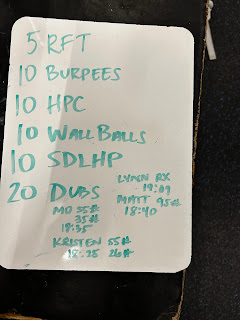 5 RFT
10 BURPEES
10 HPC
10 WALL BALLS
10 SDLHP
20 DUBS
MO 55#
35#
18:35
KRISTEN 55#
18:25 26#
LYNN RX
19:09
MATT 95#
18:40